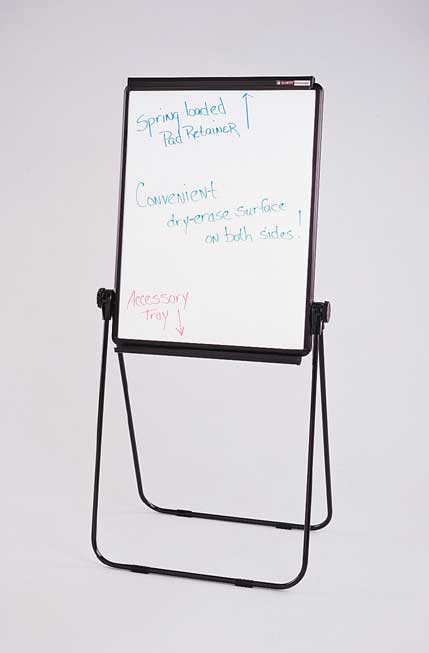 Spring loaded
Pad Retainer
Convenient
dry-erase surface
on both sides!
Accessory
Tray